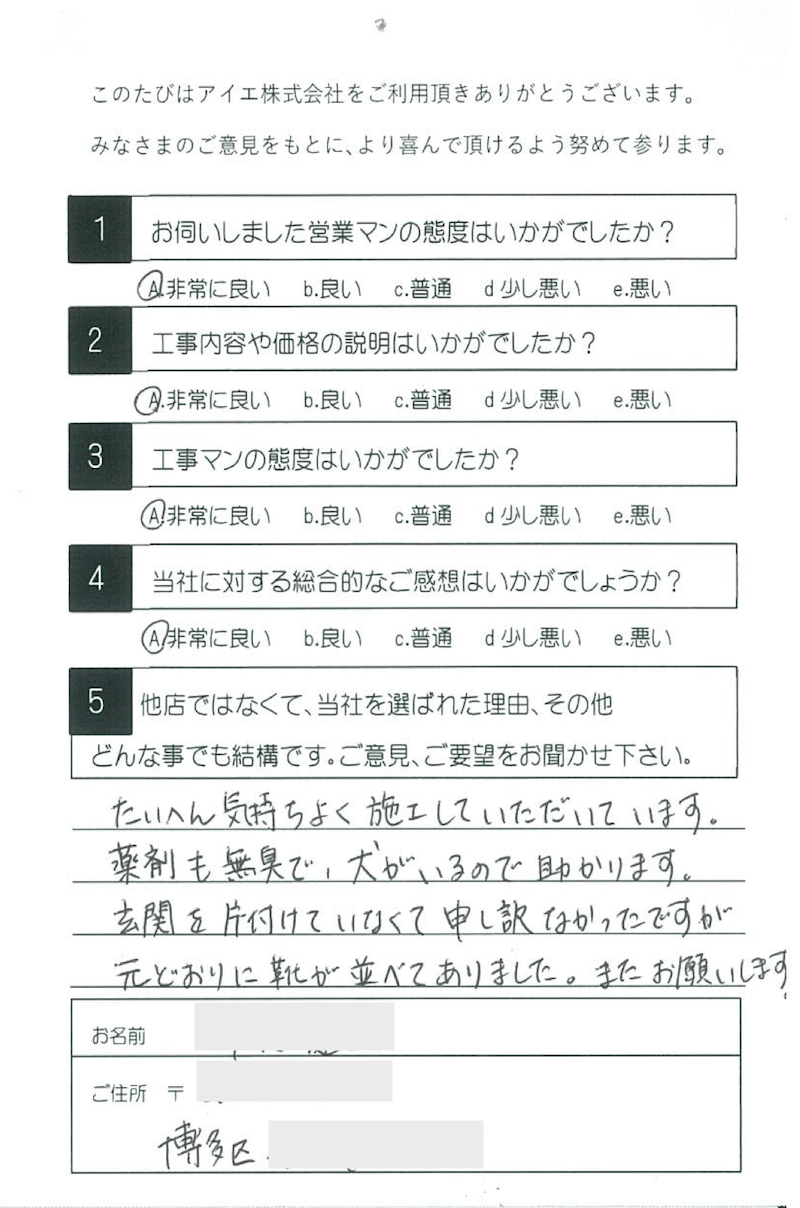 このたびはアイエ株式会社をご利用頂きありがとうございます。
みなさまのご意見をもとに、より喜んで頂けるよう努めて参ります。
1 お伺いしました営業マンの態度はいかがでしたか？
A.非常に良い b.良い c.普通 d 少し悪い e.悪い
2 工事内容や価格の説明はいかがでしたか？
A.非常に良い b.良い c.普通 d 少し悪い e.悪い
3 工事マンの態度はいかがでしたか？
A.非常に良い b.良い c.普通 d 少し悪い e.悪い
4 当社に対する総合的なご感想はいかがでしょうか？
A.非常に良い b.良い c.普通 d 少し悪い e.悪い
5 他店ではなくて、当社を選ばれた理由、その他
どんな事でも結構です。ご意見、ご要望をお聞かせ下さい。
たいへん気持ちよく施工していただいています。
薬剤も無臭で、犬がいるので助かります。
玄関を片付けていなくて申し訳なかったですが
元どおりに靴が並べてありました。またお願いします
お名前
ご住所 〒
博多区